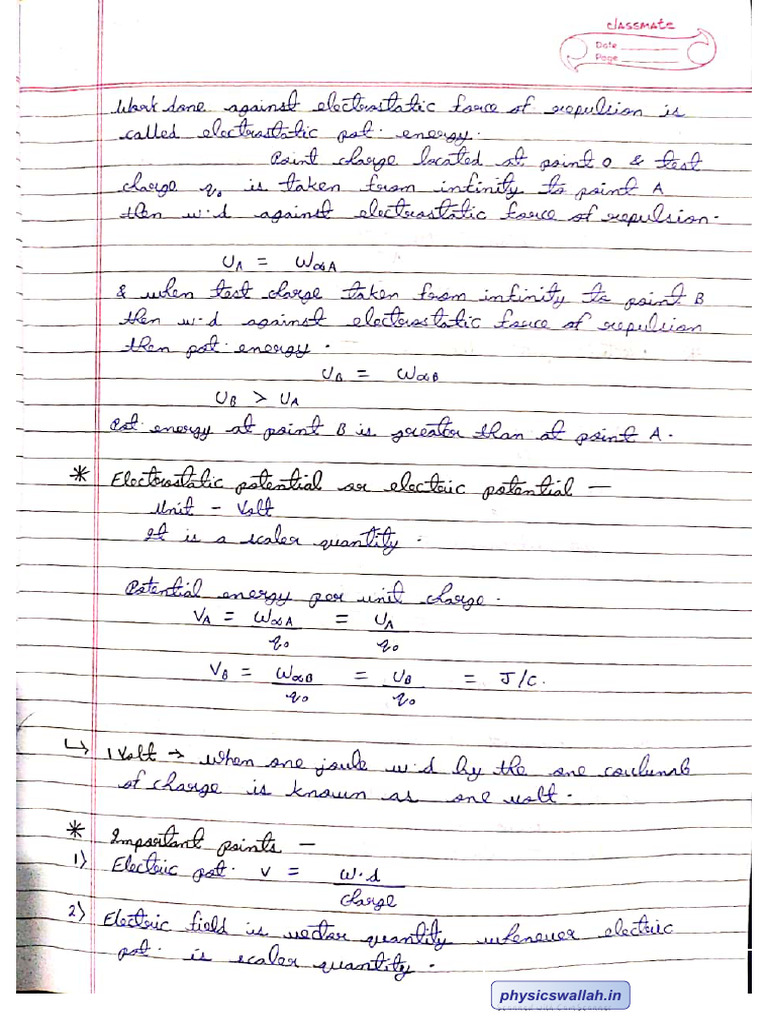 CLASSMATE
Date
Page
Work done against electrostatic force of repulsion is
called electrostatic pot. energy.
Point charge located at point O & test
charge q₀ is taken from infinity to point A
then w.d against electrostatic force of repulsion.
U_A = W∞A
& when test charge taken from infinity to point B
then w.d against electrostatic force of repulsion
then pot energy.
U_B = W∞B
U_B > U_A
Pot. energy at point B is greater than at point A.
* Electrostatic potential or electric potential —
Unit - Volt
It is a scaler quantity.
Potential energy per unit charge.
V_A = W∞A / q₀ = U_A / q₀
V_B = W∞B / q₀ = U_B / q₀ = J/C.
↳ 1 Volt → when one joule w.d by the one coulumb
of charge is known as one volt.
* Important points —
1) Electric pot. V = w.d / charge
2) Electric field is vector quantity whenever electric
pot. is scaler quantity.
physicswallah.in